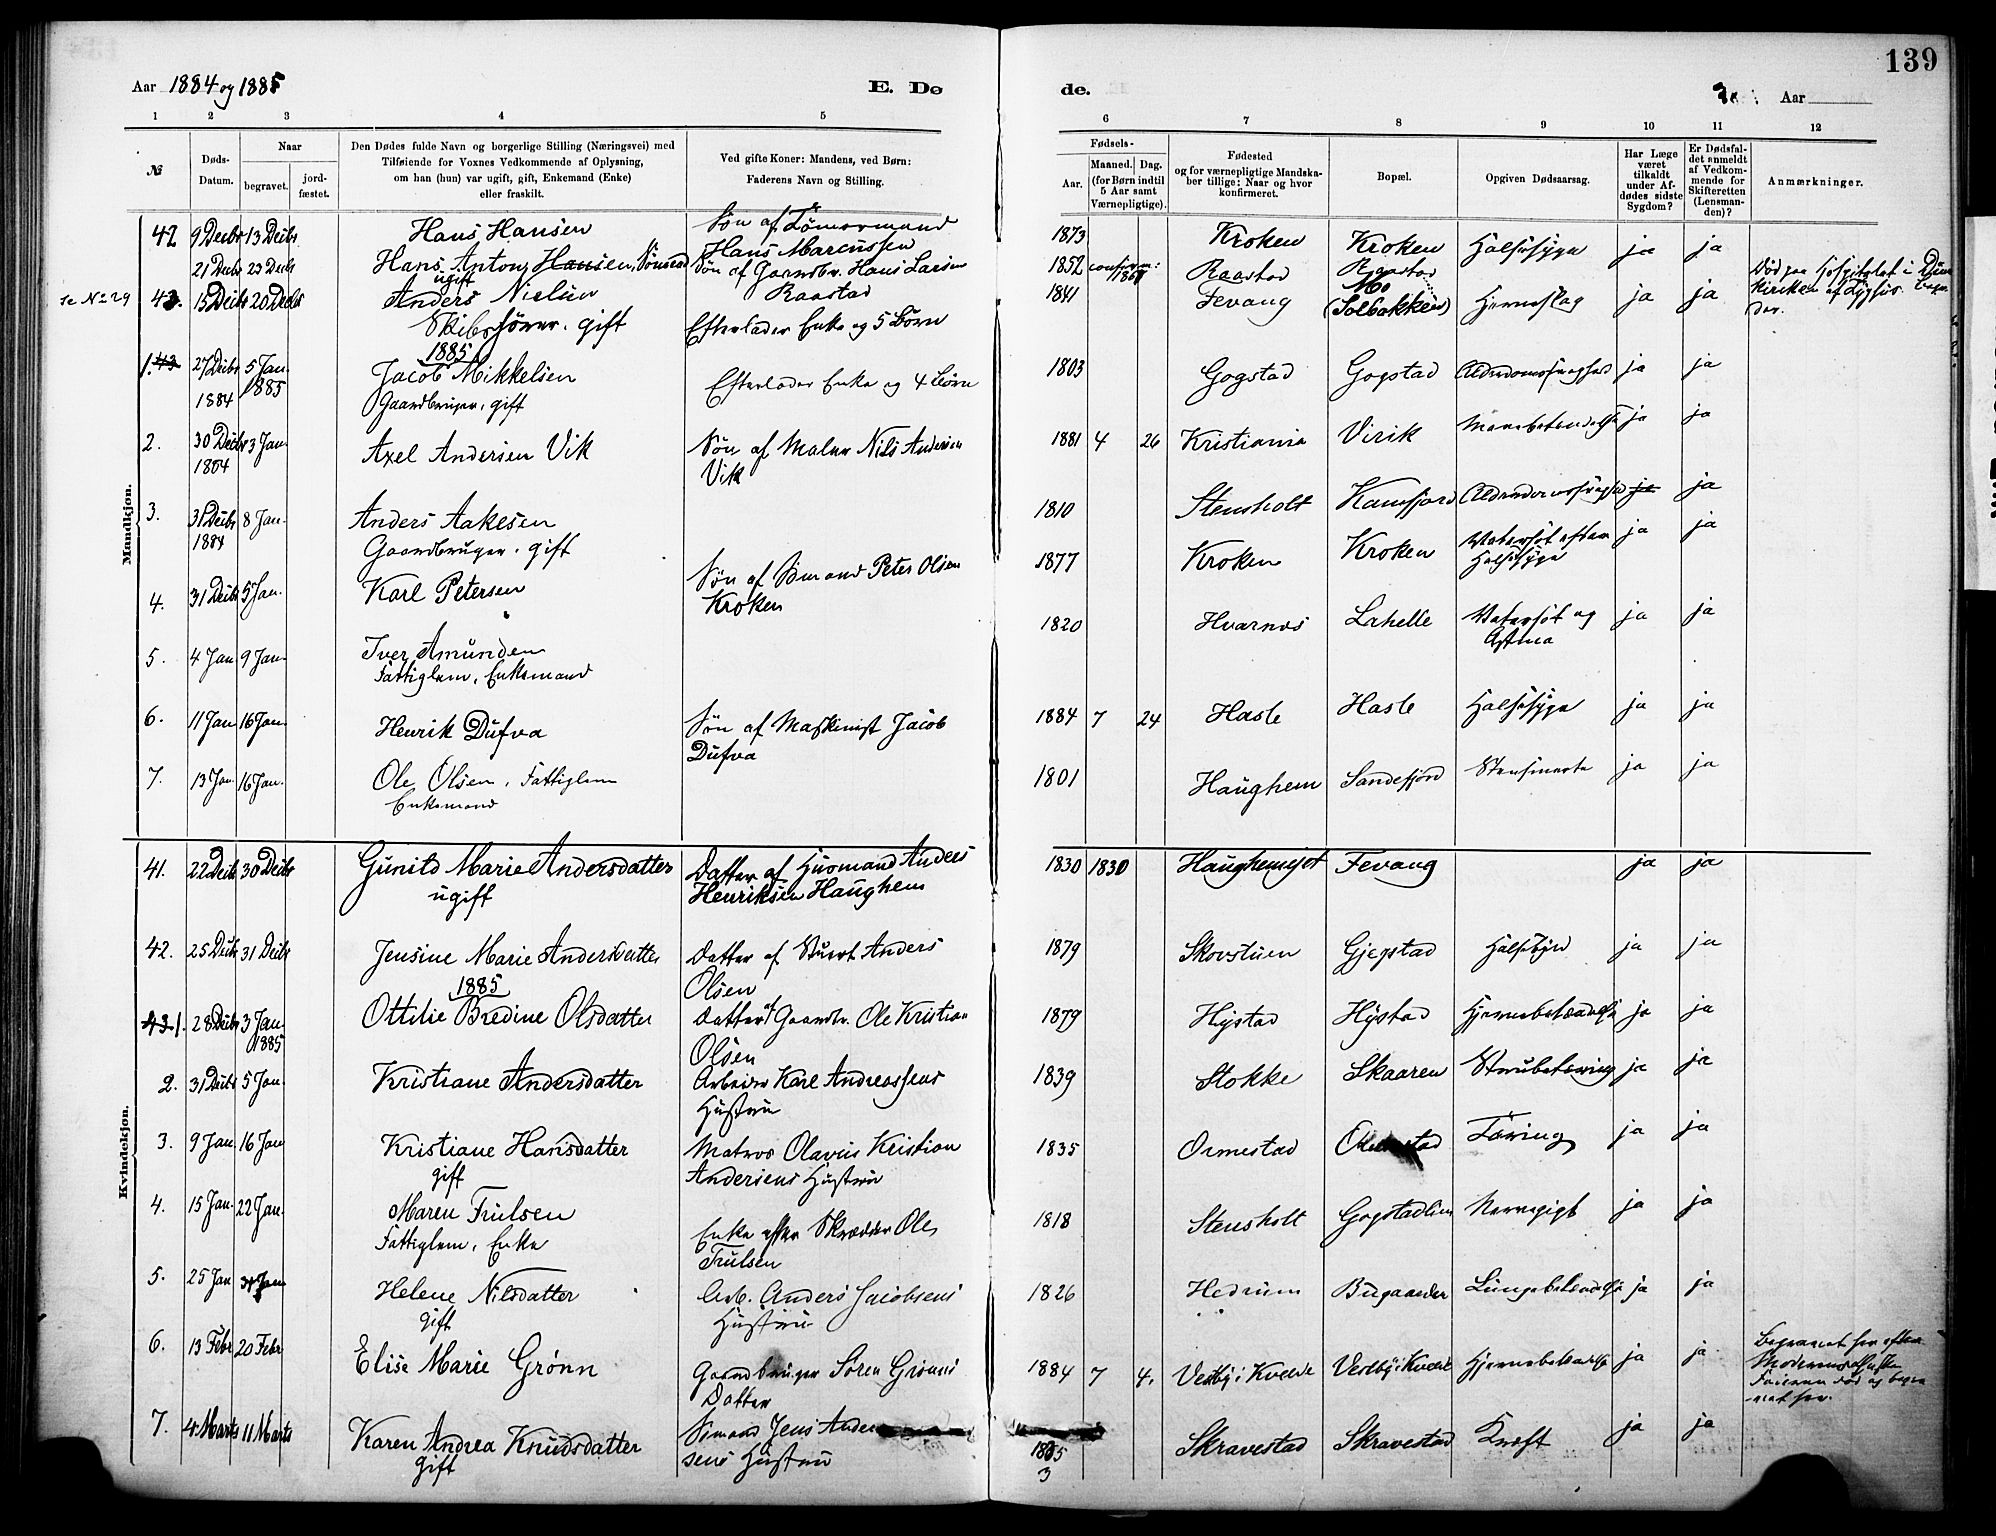 139
Aar 1884 og 1885
E. Dø
de.
Aar
1 2 3 4 5
6 7 8 9 10 11 12
№
Døds-
Datum.
Naar
begravet.
jord-
fæstet.
Den Dødes fulde Navn og borgerlige Stilling (Næringsvei) med
Tilføiende for Voxnes Vedkommende af Oplysning,
om han (hun) var ugift, gift, Enkemand (Enke)
eller fraskilt.
Ved gifte Koner: Mandens, ved Børn:
Faderens Navn og Stilling.
Fødsels-
Aar.
Maaned. Dag.
(for Børn indtil
5 Aar samt
Værnepligtige).
Fødested
og for værnepligtige Mandska-
ber tillige: Naar og hvor
konfirmeret.
Bopæl.
Opgiven Dødsaarsag.
Har Læge
været
tilkaldt
under Af-
dødes sidste
Sygdom?
Er Dødsfal-
det anmeldt
af Vedkom-
mende for
Skifteretten
(Lensman-
den)?
Anmærkninger.
Mandkjøn.
42 9 Decbr 13 Decbr Hans Hansen Søn af Tømmermand
Hans Marcussen
1873 Kroken Kroken Halssyge ja ja
21 Decbr 23 Decbr Hans Anton Hansen, Sømand Søn af Gaardbr. Hans Larsen
ugift Raastad
1852 Raastad Raastad
se No 29 43. 15 Decbr 20 Decbr Anders Nielsen
Skibsfører. gift Efterlader Enke og 5 Børn
1841 Fevang Mo
(Solbakken) Hjerneslag ja ja
Død paa Hospitalet i
af Typhus.
1885
1. 43 27 Decbr 5 Jan. Jacob Mikkelsen Efterlader Enke og 4 Børn
1884 1885 Gaardbruger, gift
1803 Gogstad Gogstad Alderdomssvaghed ja ja
2. 30 Decbr 3 Jan. Axel Andersen Vik Søn af Maler Nils Andersen
1884 Vik
1881 4 26 Kristiania Virik ja ja
3. 31 Decbr 8 Jan. Anders Aakesen
1884 Gaardbruger. gift
1810 Stensholt Kamfjord Alderdomssvaghed ja ja
4. 31 Decbr 5 Jan. Karl Petersen Søn af Sømand Peter Olsen
Kroken
1877 Kroken Kroken Vatersot efter
Halssyge ja ja
5. 4 Jan 9 Jan. Iver Amunden
Fattiglem, Enkemand
1820 Hvarnes Lahelle Vatersot og
Astma ja ja
6. 11 Jan 16 Jan. Henrik Dufva Søn af Maskinist Jacob
Dufva
1884 7 24 Hasle Hasle Halssyge ja ja
7. 13 Jan. 16 Jan. Ole Olsen, Fattiglem
Enkemand
1801 Haughem Sandefjord Stensmerte ja ja
Kvindekjøn.
41. 22 Decbr 30 Decbr Gunild Marie Andersdatter Datter af Husmand Anders
ugift Henriksen Haughem
1830 1830 Haughemejet Fevang ja ja
42. 25 Decbr 31 Decbr Jensine Marie Andersdatter Datter af Anders
Olsen
1879 Skovstuen Gjegstad ja ja
1885
43 1. 28 Decbr 3 Jan. Ottilie Bredine Olsdatter Datter af Gaardbr. Ole Kristian
1885 Olsen
1879 Hystad Hystad Hjernebetændelse ja ja
2. 31 Decbr 5 Jan. Kristiane Andersdatter Arbeider Karl Andreassens
Hustru
1839 Stokke Skaaren Strubetæring ja ja
3. 9 Jan. 16 Jan Kristiane Hansdatter Matros Olavus Kristian
gift Andersens Hustru
1835 Ormestad Tæring ja ja
4. 15 Jan. 22 Jan. Maren Trulsen Enke efter Skrædder Ole
Fattiglem, Enke Trulsen
1818 Stensholt Gogstadlien Nervegigt ja ja
5. 25 Jan 31 Jan Helene Nilsdatter Arb. Anders Jacobsens
gift Hustru
1826 Hedrum Bugaarden Lungebetændelse ja ja
6. 13 Febr 20 Febr Elise Marie Grønn Gaardbruger Søren Grønns
Datter
1884 7 4. Vestby i Kvelde Vestby i Kvelde Hjernebetændelse ja ja
Begravet her efter
7. 4 Marts 11 Marts Karen Andrea Knudsdatter Sømand Jens Ander
gift sens Hustru
1835
3 Skravestad Skravestad Kræft ja ja